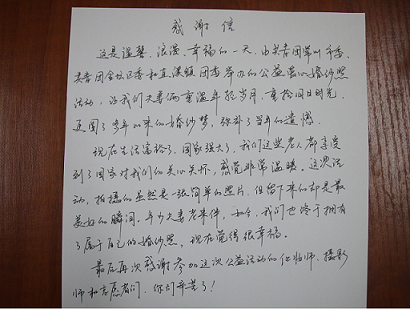 感谢信
这是温馨、浪漫、幸福的一天，由共青团常州市委、
共青团金坛区委和直溪镇团委举办的公益圆以婚纱照
活动，让我们夫妻俩重温年轻岁月，重拾旧日时光，
更圆了多年以来的婚纱梦，弥补了当年的遗憾。
现在生活富裕了，国家强大了，我们这些老人都享受
到了国家对我们的关心关怀，感觉非常温暖。这次活
动，拍摄的虽然是一张简单的照片，但留下来的却是最
美好的瞬间，年少夫妻老来伴，如今，我们也终于拥有
了属于自己的婚纱照，现在觉得很幸福。
最后再次感谢参加这次公益活动的化妆师、摄影
师和志愿者们，你们辛苦了！